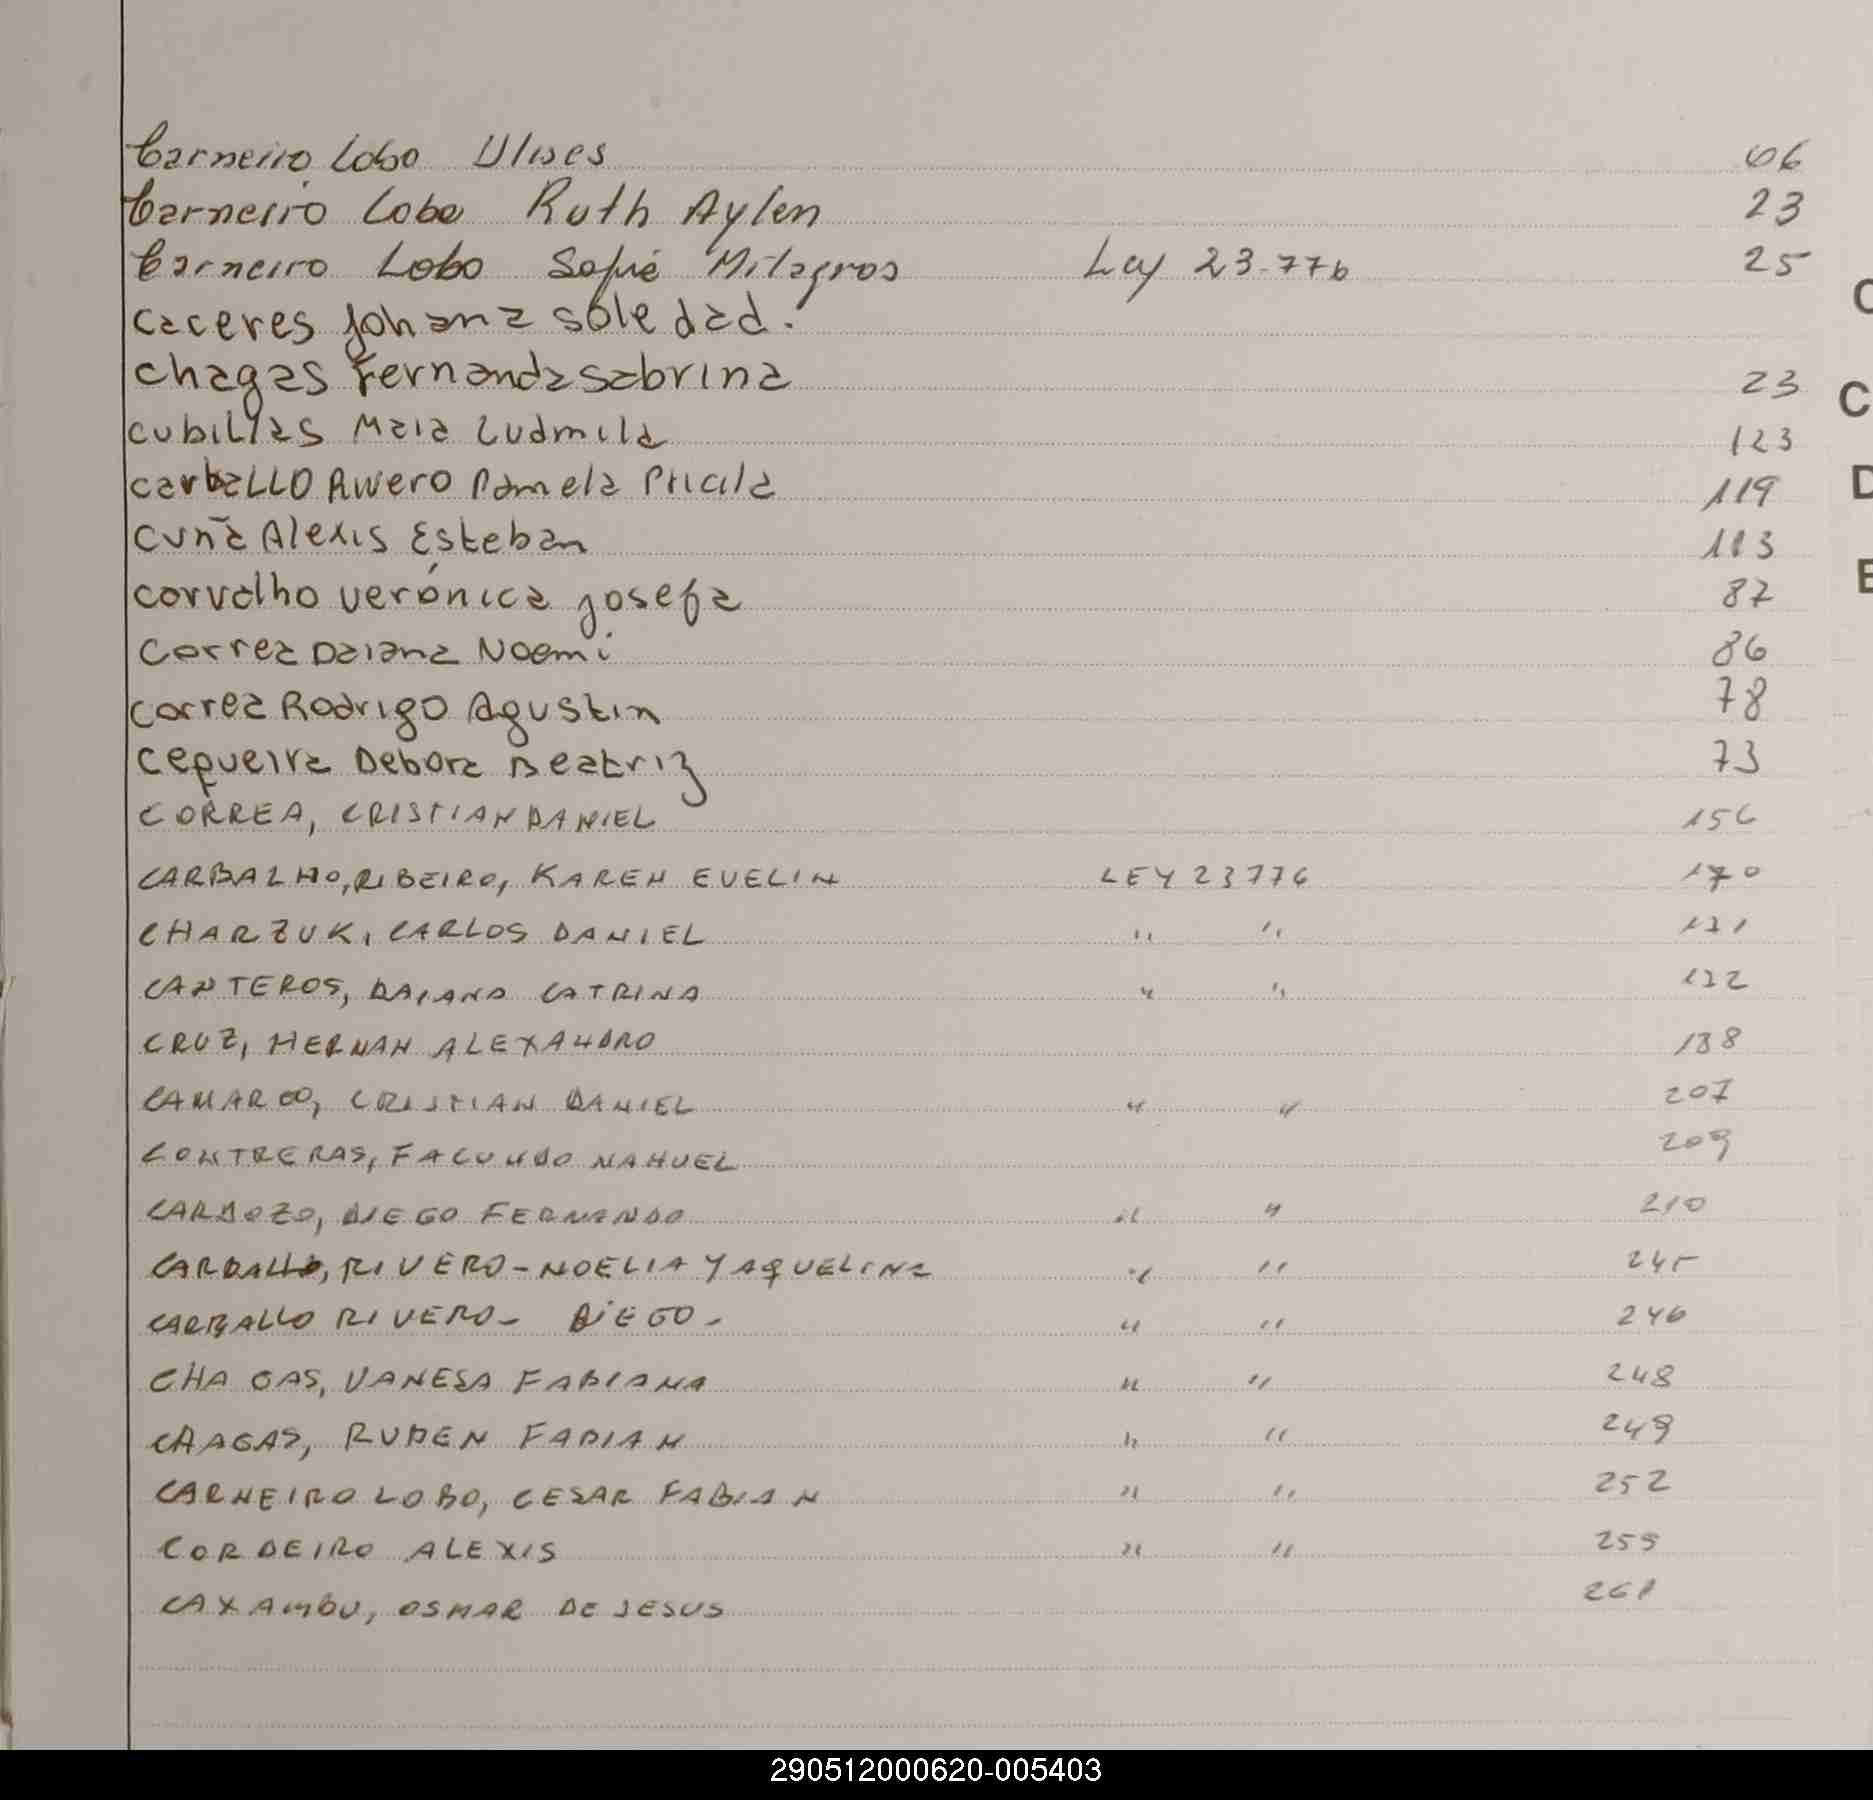 Carneiro Lobo Ulises 06
Carneiro Lobo Ruth Aylen 23
Carneiro Lobo Sofia Milagros Ley 23.776 25
caceres Johana soledad.
chagas Fernanda sabrina 23
cubillas Maia Ludmila 123
carballo Rivero Pamela Pricila 119
cuña Alexis Esteban 113
corvalho verónica josefa 87
correa Daiana Noemi 86
correa Rodrigo Agustin 78
cequeira Debora Beatriz 73
CORREA, CRISTIAN DANIEL 156
CARBALHO, RIBEIRO, KAREN EVELIN LEY 23776 170
CHARZUK, CARLOS DANIEL " " 171
CANTEROS, DAIANA CATRINA " " 172
CRUZ, HERNAN ALEXANDRO 188
CAMARGO, CRISTIAN DANIEL " " 207
CONTRERAS, FACUNDO NAHUEL 209
CARDOZO, DIEGO FERNANDO " " 210
CARBALLO, RIVERO - NOELIA YAQUELINE " " 245
CARBALLO RIVERO - DIEGO - " " 246
CHAGAS, VANESA FABIANA " " 248
CHAGAS, RUBEN FABIAN " " 249
CARNEIRO LOBO, CESAR FABIAN " " 252
CORDEIRO ALEXIS " " 259
CAXAMBU, OSMAR DE JESUS 261
C
C
D
E
290512000620-005403